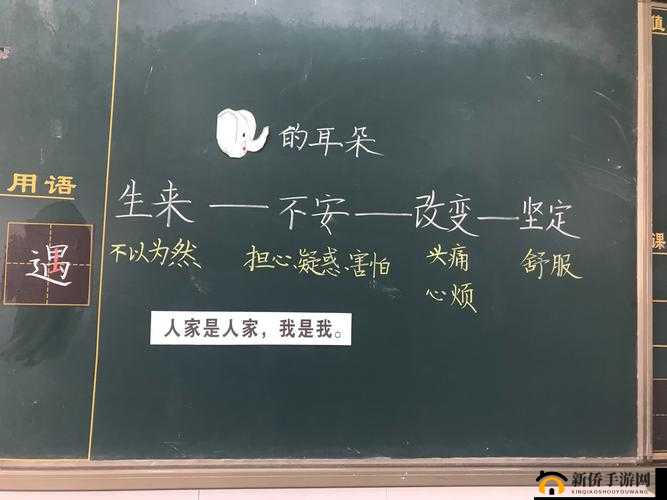 的耳朵
用语
生来——不安——改变——坚定
不以为然 担心、疑惑、害怕 头痛 舒服
心烦
遇
人家是人家，我是我。
值
课
新侨手游网
XINQIAOSHOUYOUWANG